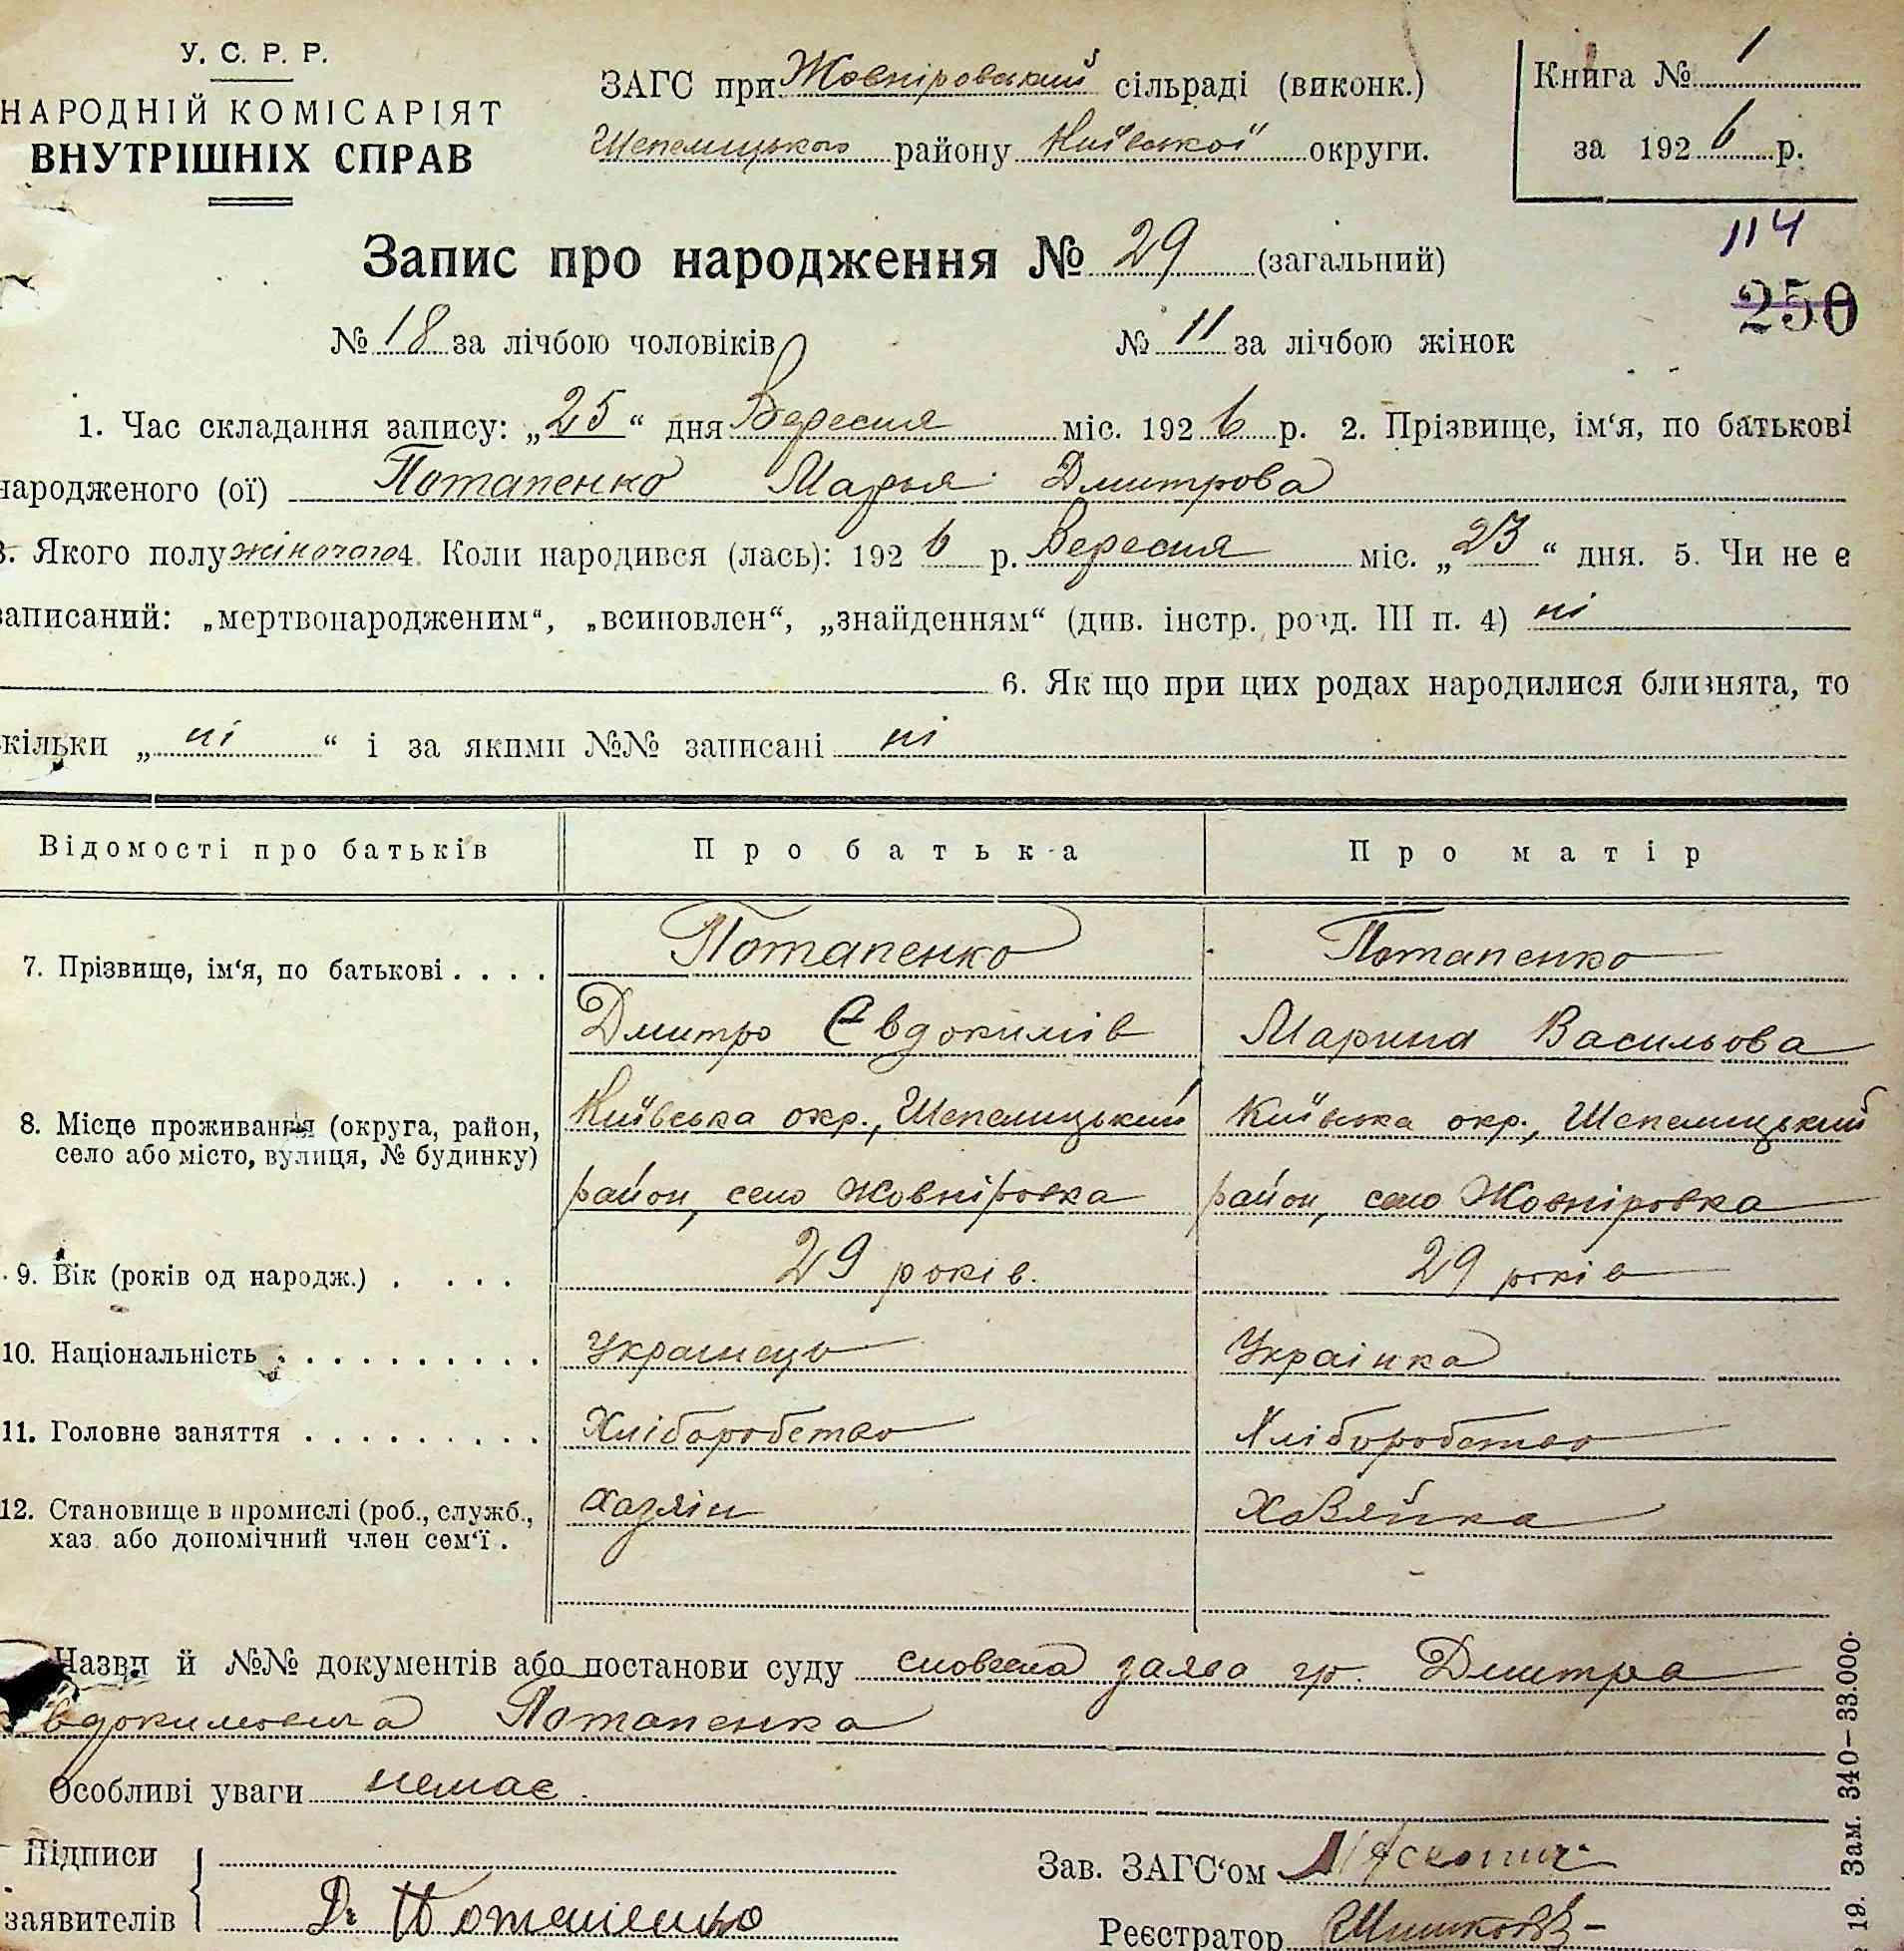 У. С. Р. Р.
НАРОДНІЙ КОМІСАРІЯТ
ВНУТРІШНІХ СПРАВ
ЗАГС при Жовніровський сільраді (виконк.)
Шепелицького району Київської округи.
Книга № 1
за 1926 р.
Запис про народження № 29 (загальний)
114
250
№ 18 за лічбою чоловіків № 11 за лічбою жінок
1. Час складання запису: „25“ дня Вересня міс. 1926 р. 2. Прізвище, ім‘я, по батькові
народженого (ої) Потапенко Марья Дмитрова
3. Якого полу жіночого 4. Коли народився (лась): 1926 р. Вересня міс. „23“ дня. 5. Чи не є
записаний: „мертвонародженим“, „всиновлен“, „знайденням“ (див. інстр. розд. III п. 4) ні
6. Як що при цих родах народилися близнята, то
кільки „ні“ і за якими №№ записані ні
Відомості про батьків Про батька Про матір
7. Прізвище, ім‘я, по батькові . . . . Потапенко Потапенко
Дмитро Євдокимів Марина Васильова
8. Місце проживання (округа, район, село або місто, вулиця, № будинку) Київська окр., Шепелицький Київська окр., Шепелицький
район, село Жовніровка район, село Жовніровка
9. Вік (років од народж.) . . . . 29 років. 29 років
10. Національність . . . . . . . . . . Украинець Українка
11. Головне заняття . . . . . . . . . Хліборобство Хліборобство
12. Становище в промислі (роб., служб., хаз. або допомічний член сем‘ї . Хазяін Хазяйка
Назва й №№ документів або постанови суду словесна заява гр. Дмитра
вдокимовича Потапенка
Особливі уваги немає.
Підписи
заявителів Д. Потапенко
Зав. ЗАГС‘ом
Реєстратор
19. Зам. 340—33.000.